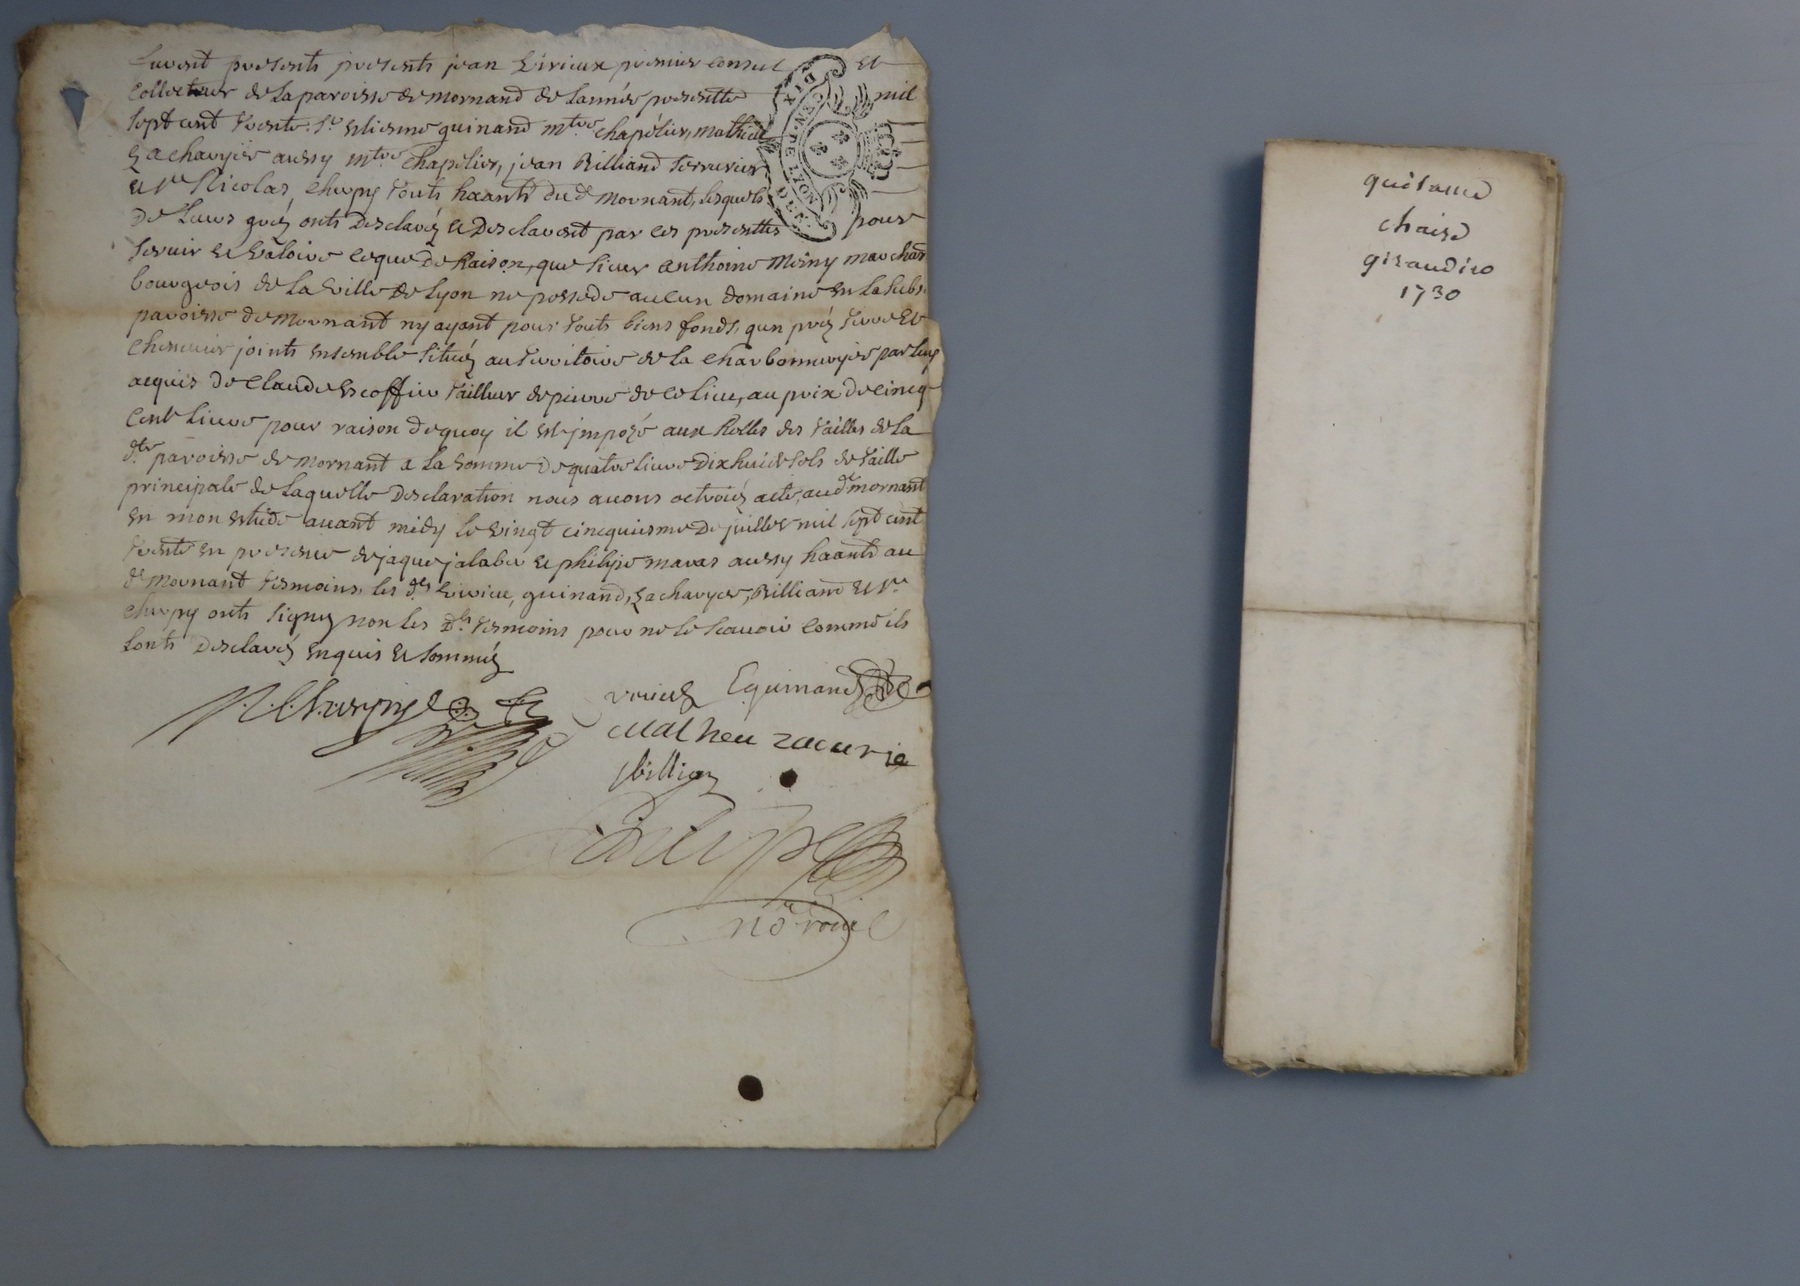 furent presents presents jean Virieux premier consul et
Collecteur de la paroisse de mornand de lannée presentte mil
sept cent trente. Sr Estienne guinand mtre chapélier, mathieu
Zacharyie aussy mtre Chapélier, jean Billiand serrurier
et Sr Nicolas Cherpy touts haants dud mornant, lesquels
de Leurs gréz onts desclaréz et desclarent par ces presenttes pour
servir et valoire ceque de Raison, que sieur anthoine Meiny marchand
bourgeois de la ville de Lyon ne possede aucun domaine en la susd
paroisse de Mornant ny ayant pour touts biens fonds, qun préz terre et
chenevier joints ensemble situéz au territoire de la Charbonneryie par luy
acquis de Claude Escoffier tailleur de pierre de ce lieu, au prix de cinq
cent livre pour raison dequoy il est jmpozé aux Rolles des tailles de la
dte paroisse de mornant a la somme de quatre livre dix huict sols de taille
principale de laquelle desclaration nous avons octroiéz acte, aud mornant
en mon estude avant midy le vingt cincquiesme de juillet mil sept cent
trente en presence de jaque jalabe et philipe maras aussy haants au
d mornant tesmoins, les dts Virieu, guinand, Zacharyer, Billiand et Sr
cherpy onts signez non les dts tesmoins pour ne le scavoir comme ils
lonts desclaréz enquis et somméz
N. Cherpy virieux E guinand
Matheu zacurie
jbillian
no. roial
DIX DEN. GEN. DE LYON
quitance
chaise
giraudiere
1730